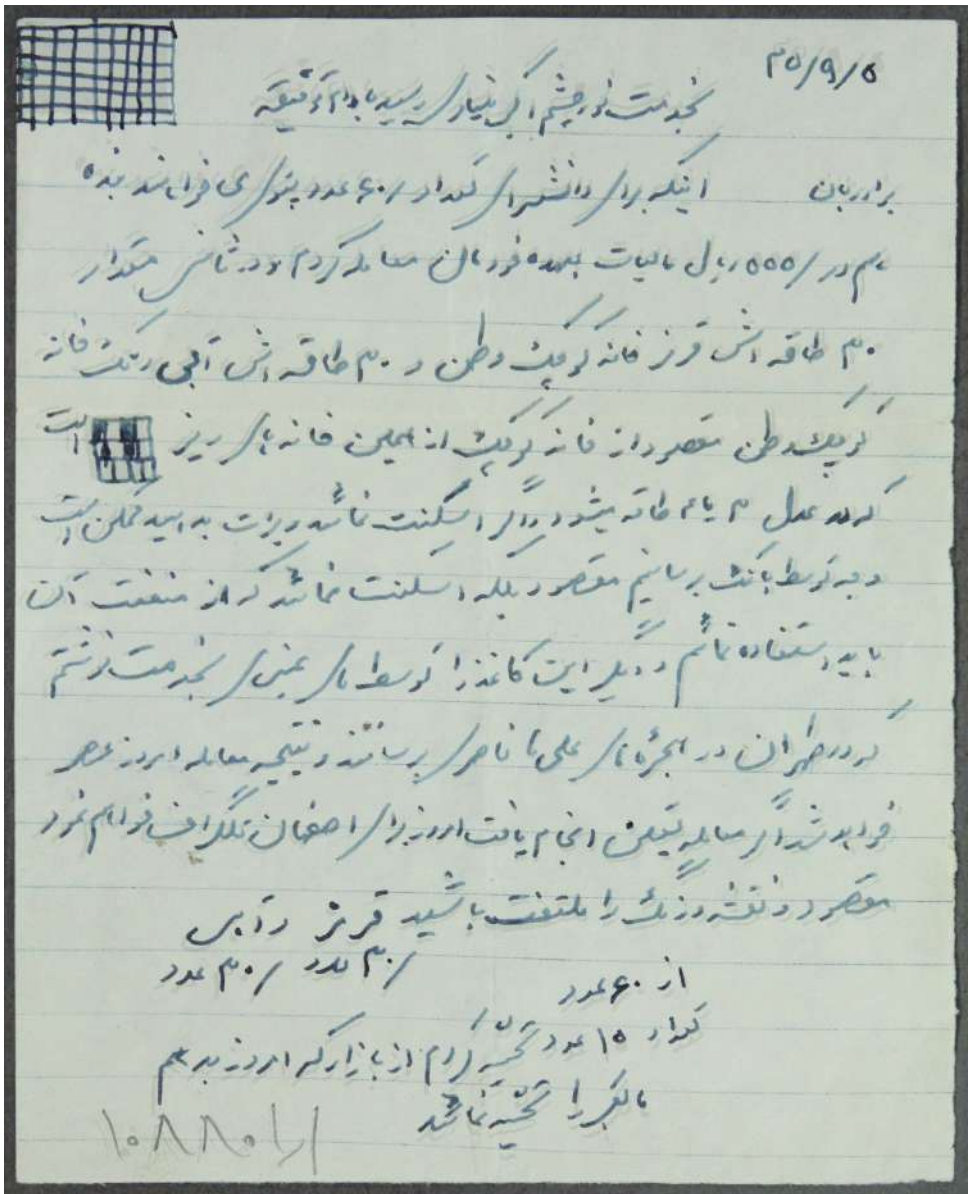 ۳۵/۹/۵
بخدمت نور چشم اکبر برسید
برادرجان اینکه برای دانشسرا مقدار ۶۰ عدد پتو می خواستند بنده
هم در /۵۵۵ ریال مالیات بعهده خودمان معامله کردم و در ثانی مقدار
۳۰ طاقه اش قرمز خانه کوچک وطن و ۳۰ طاقه اش آبی رنگ خانه
کوچک وطن مقصود از خانه کوچک از همین خانه های ریز است
که عدل ۳ یا ۴ طاقه میشود و اگر اسکنت نمائید ممکن است
وجه توسط بانک برسانیم مقصود بلکه اسکنت نمائید که از منفعت آن
باید استفاده نمائیم و دیگر این کاغذ را توسط بخدمت نوشتم
که در طهران در حجره علی آقا ناصر برسانند و نتیجه معامله امروز عصر
خواهد شد اگر معامله یقین انجام یافت امروز برای اصفهان تلگراف خواهم نمود
مقصود و نقشه و رنگ را ملتفت باشید قرمز و آبی
/۳۰ عدد /۳۰ عدد
از ۶۰ عدد
مقدار ۱۵ عدد تهیه کردم از بازار که امروز بدهم
مابقی را تهیه نمائید
۱۰۸۸۰۱/۱